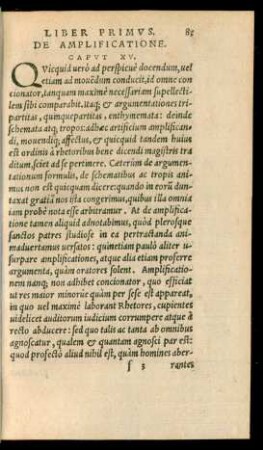 LIBER PRIMVS. 85
DE AMPLIFICATIONE.
CAPVT XV.
QVicquid uerò ad perspicuè docendum, uel
etiam ad mouẽdum conducit, id omne con
cionator, tanquam maximè necessariam supellecti-
lem sibi comparabit. itaq; & argumentationes tri-
partitas, quinquepartitas, enthymemata: deinde
schemata atq; tropos: adhæc artificium amplifican-
di, mouendiq; affectus, & quicquid tandem huius
est ordinis à rhetoribus bene dicendi magistris tra
ditum, sciet ad se pertinere. Cæterùm de argumen-
tationum formulis, de schematibus ac tropis ani
mus non est quicquam dicere: quando in eorũ dun-
taxat gratiã nos ista congerimus, quibus illa omnia
iam probè nota esse arbitramur. At de amplifica-
tione tamen aliquid adnotabimus, quòd plerosque
sanctos patres studiose in ea pertractanda ani-
maduertamus uersatos: quinetiam paulò aliter u-
surpare amplificationes, atque alia etiam proserre
argumenta, quàm oratores solent. Amplificatio-
nem nanq; non adhibet concionator, quo efficiat
ut res maior minorúe quàm per sese est appareat,
in quo uel maximè laborant Rhetores, cupientes
uidelicet auditorum iudicium corrumpere atque à
recto abducere: sed quo talis ac tanta ab omnibus
agnoscatur, qualem & quantam agnosci par est:
quod profectò aliud nihil est, quàm homines aber-
f 3 rantes